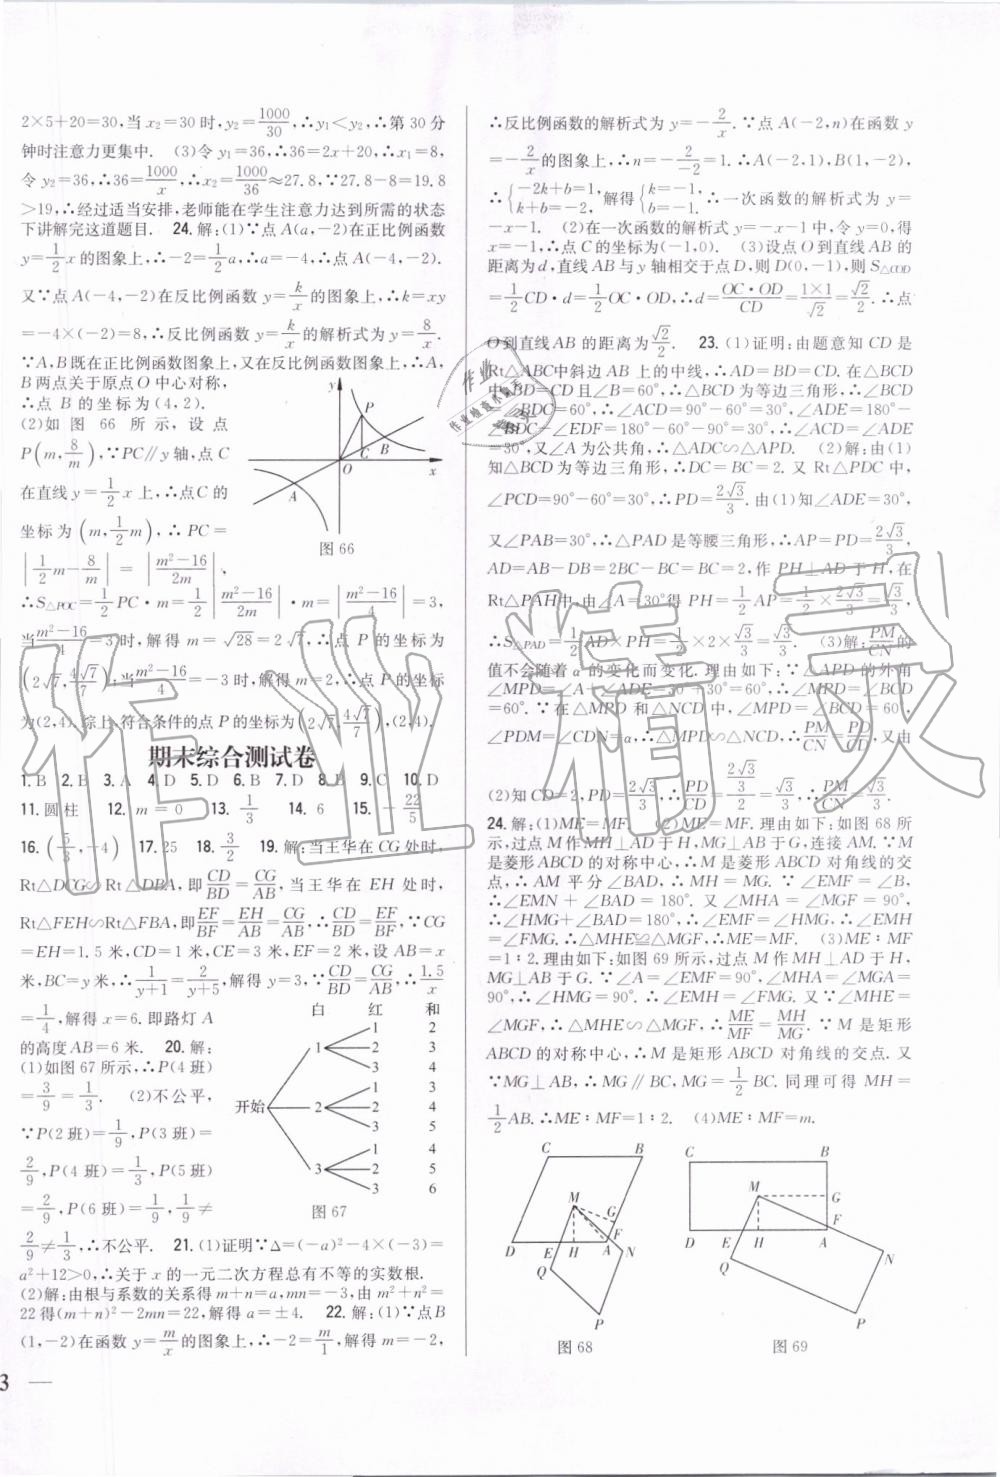 2×5+20=30,当 x₂=30 时,y₂=1000/30,∴y₁<y₂,∴第 30 分
钟时注意力更集中. (3)令 y₁=36,∴36=2x+20,∴x₁=8,
令 y₂=36,∴36=1000/x,∴x₂=1000/36≈27.8,∵27.8-8=19.8
>19,∴经过适当安排,老师能在学生注意力达到所需的状态
下讲解完这道题目. 24.解:(1)∵点 A(a,-2)在正比例函数
y=1/2x 的图象上,∴-2=1/2a,∴a=-4,∴点 A(-4,-2).
又∵点 A(-4,-2)在反比例函数 y=k/x 的图象上,∴k=xy
=-4×(-2)=8,∴反比例函数 y=k/x 的解析式为 y=8/x.
∵A,B既在正比例函数图象上,又在反比例函数图象上,∴A,
B两点关于原点O中心对称,
∴点 B 的坐标为(4,2).
(2)如图 66 所示,设点
P(m,8/m),∵PC∥y轴,点C
在直线 y=1/2x 上,∴点C的
坐标为(m,1/2m),∴PC=
|1/2m-8/m|=|(m²-16)/2m|,
∴S△POC=1/2PC·m=1/2|(m²-16)/2m|·m=|(m²-16)/4|=3,
当(m²-16)/4=3时,解得 m=√28=2√7,∴点 P 的坐标为
(2√7,4√7/7);当(m²-16)/4=-3 时,解得 m=2,∴点 P 的坐标
为(2,4).综上,符合条件的点 P 的坐标为(2√7,4√7/7),(2,4).
y
P
B
C
O
x
A
图 66
期末综合测试卷
1.B 2.B 3.A 4.D 5.D 6.B 7.D 8.B 9.C 10.D
11.圆柱 12.m=0 13.1/3 14.6 15.-22/5
16.(5/3,-4) 17.25 18.3/2 19.解:当王华在CG处时,
Rt△DCG∽Rt△DBA,即CD/BD=CG/AB,当王华在 EH 处时,
Rt△FEH∽Rt△FBA,即EF/BF=EH/AB=CG/AB,∴CD/BD=EF/BF.∵CG
=EH=1.5米,CD=1米,CE=3米,EF=2米,设 AB=x
米,BC=y米,∴1/(y+1)=2/(y+5),解得 y=3,∵CD/BD=CG/AB,∴1.5/x
=1/4,解得 x=6.即路灯 A
的高度AB=6米. 20.解:
(1)如图67所示,∴P(4班)
=3/9=1/3. (2)不公平,
∵P(2班)=1/9,P(3班)=
2/9,P(4班)=1/3,P(5班)
=2/9,P(6班)=1/9,1/9≠
2/9≠1/3,∴不公平. 21.(1)证明∵Δ=(-a)²-4×(-3)=
a²+12>0,∴关于x的一元二次方程总有不等的实数根.
(2)解:由根与系数的关系得 m+n=a,mn=-3,由 m²+n²=
22得(m+n)²-2mn=22,解得 a=±4. 22.解:(1)∵点B
(1,-2)在函数 y=m/x 的图象上,∴-2=m/1,解得 m=-2,
白 红 和
1 2
1 2 3
3 4
1 3
开始 2 2 4
3 5
1 4
3 2 5
3 6
图 67
∴反比例函数的解析式为 y=-2/x.∵点A(-2,n)在函数y
=-2/x的图象上,∴n=-2/-2=1.∴A(-2,1),B(1,-2),
∴{-2k+b=1, k+b=-2, 解得{k=-1, b=-1. ∴一次函数的解析式为 y=
-x-1. (2)在一次函数的解析式 y=-x-1中,令 y=0,得
x=-1,∴点C的坐标为(-1,0). (3)设点O到直线AB的
距离为d,直线AB与y轴相交于点D,则D(0,-1),则S△COD
=1/2CD·d=1/2OC·OD,∴d=OC·OD/CD=1×1/√2=√2/2.∴点
O到直线AB的距离为√2/2. 23.(1)证明:由题意知 CD 是
Rt△ABC中斜边AB上的中线,∴AD=BD=CD.在△BCD
中,BD=CD且∠B=60°,∴△BCD为等边三角形,∴∠BCD
=∠BDC=60°,∴∠ACD=90°-60°=30°,∠ADE=180°-
∠BDC-∠EDF=180°-60°-90°=30°,∴∠ACD=∠ADE
=30°,又∠A为公共角,∴△ADC∽△APD. (2)解:由(1)
知△BCD为等边三角形,∴DC=BC=2.又 Rt△PDC 中,
∠PCD=90°-60°=30°,∴PD=2√3/3.由(1)知∠ADE=30°,
又∠PAB=30°,∴△PAD是等腰三角形,∴AP=PD=2√3/3,
AD=AB-DB=2BC-BC=BC=2,作PH⊥AD于H,在
Rt△PAH中,由∠A=30°得 PH=1/2AP=1/2×2√3/3=√3/3,
∴S△PAD=1/2AD×PH=1/2×2×√3/3=√3/3. (3)解:PM/CN的
值不会随着α的变化而变化.理由如下:∵△APD的外角
∠MPD=∠A+∠ADE=30°+30°=60°,∴∠MPD=∠BCD
=60°.∵在△MPD和△NCD中,∠MPD=∠BCD=60°,
∠PDM=∠CDN=α,∴△MPD∽△NCD,∴PM/CN=PD/CD,又由
(2)知CD=2,PD=2√3/3,∴PD/CD=(2√3/3)/2=√3/3,∴PM/CN=√3/3.
24.解:(1)ME=MF. (2)ME=MF.理由如下:如图68所
示,过点M作MH⊥AD于H,MG⊥AB于G,连接AM.∵M
是菱形ABCD的对称中心,∴M是菱形ABCD对角线的交
点,∴AM平分∠BAD,∴MH=MG.∵∠EMF=∠B,
∴∠EMN+∠BAD=180°.又∠MHA=∠MGF=90°,
∴∠HMG+∠BAD=180°,∴∠EMF=∠HMG,∴∠EMH
=∠FMG.∴△MHE≌△MGF,∴ME=MF. (3)ME∶MF
=1∶2.理由如下:如图69所示,过点M作MH⊥AD于H,
MG⊥AB于G.∵∠A=∠EMF=90°,∠MHA=∠MGA=
90°,∴∠HMG=90°,∴∠EMH=∠FMG.又∵∠MHE=
∠MGF,∴△MHE∽△MGF,∴ME/MF=MH/MG.∵M是矩形
ABCD的对称中心,∴M是矩形ABCD对角线的交点.又
∵MG⊥AB,∴MG∥BC,MG=1/2BC.同理可得MH=
1/2AB.∴ME∶MF=1∶2. (4)ME∶MF=m.
C B
M
G
F
D E H A N
Q
P
图 68
C B
M
G
F
D E H A
Q N
P
图 69
3
作业精灵